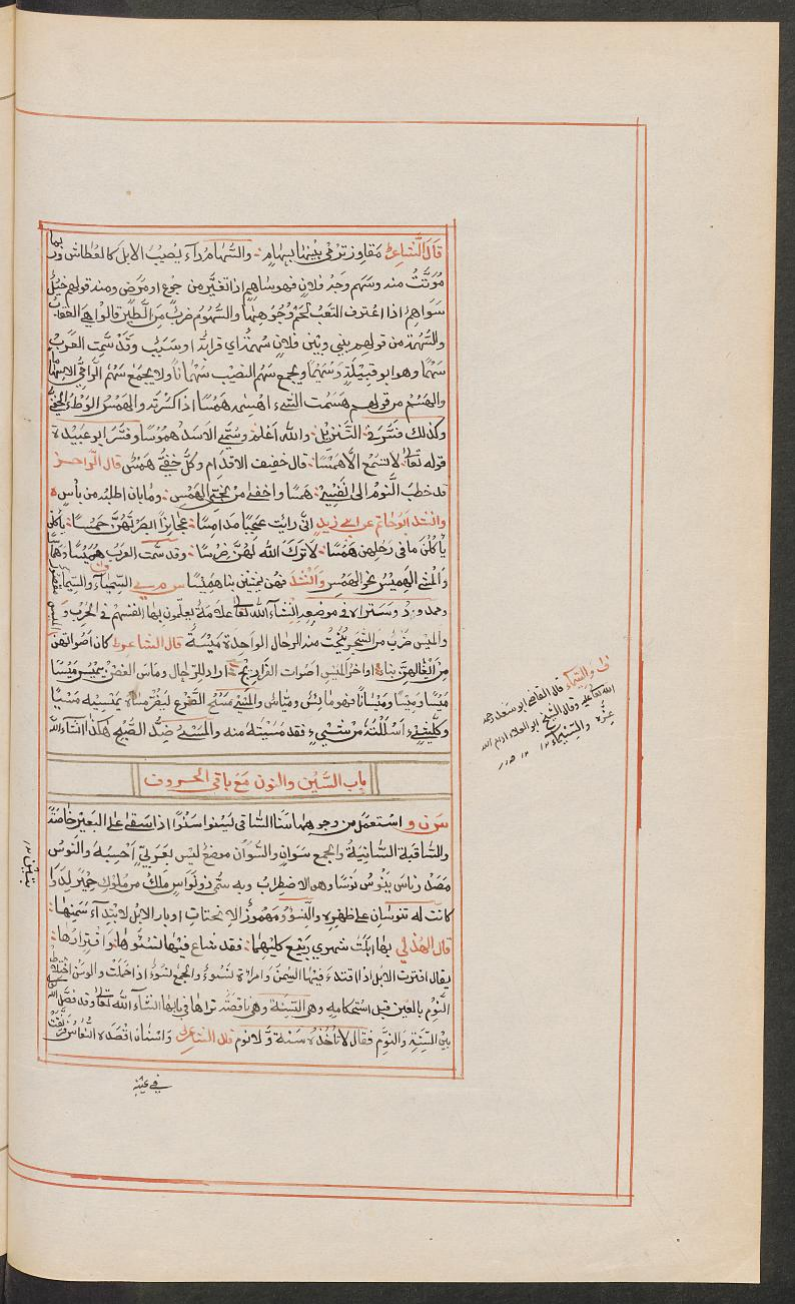 قال الشاعر مفاوز ترمي بينها بسهام والسهام داء يصيب الابل كالعطاش وربما
موتت منه وسهم وجه فلان فهو ساهم اذا تغير من جوع او مرض ومنه قولهم خيل
سواهم اذا اعترف التعب لحم وجوهها والسهوم ضرب من الطير قالوا هي العقاب
والسهمة من قولهم بيني وبين فلان سهمة اي قرابة او سبب وقد سمت العرب
سهما وهو ابو قبيلة وسهيما ويجمع سهم النصيب سهمانا ولا يجمع سهم الرامي الا سهاما
والهسم من قولهم هسمت الشيء اهسمه همسا اذا كسرته والهمس الوطء الخفي
وكذلك فسر في التنزيل والله اعلم وسمي الاسد هموسا وفسر ابو عبيدة
قوله تعالى لا تسمع الا همسا قال خفيف الاقدام وكل خفي همس قال الراجز
قد خطب النوم الي نفسي همسا واخفى من نجي الهمس وما بان اطلبه من بأس
وانشد ابو حاتم عن ابي زيد اني رايت عجبا مذ امسا عجائزا خمسا
ياكلن ما في رحلهن همسا لا ترك الله لهن ضرسا وقد سمت العرب هميسا وهماسا
والمشي الهميس نحو الهمس وانشد فهن يمشين بنا هميسا س م ي السيمياء والسيما مقصور
وممدود وستراه في موضعه انشاء الله تعالى علامة يعلمون بها انفسهم في الحرب و
والميس ضرب من الشجر ينحت منه الرحال الواحدة ميسة قال الشاعر كان اصوات من
ايغالهن بنا اواخر الميس اصوات الفراريج اراد الرحال وماس الغصن يميس ميسا
وميسانا فهو مائس ومياس والمسي مسح الضرع ليدر مساه يمسيه مسيا
وكل شيء استللته من شيء فقد مسيته منه والمسي ضد الصبح هكذا انشاء الله
باب السين والنون مع باقي الحروف
س ن و استعمل من وجوهها سنا الساقي يسنو اسنوا اذا سقى على البعير خاصة
والساقية السانية والجمع سوان والسوان موضع ليس بعربي احسبه والنوس
مصدر ناس ينوس نوسا وهو الاضطراب وبه سمي ذو نواس ملك من ملوك حمير لذؤابة
كانت له تنوسان على ظهره والنسوء مهموز الانحتات اوبار الابل لابتداء سمنها
قال الهذلي بها ابلت شهري ربيع كليهما فقد شاع فيها نسؤها واقترارها
يقال اقترت الابل اذا فيها اليمن وامراة نسوء والجمع نسوء اذا حملت والوسن اختلاط
النوم بالعين قبل استحكامه وهي السنة وهي ناقصة تراها في بابها انشاء الله تعالى وقد فصل الله
بين السنة والنوم فقال لا تأخذه سنة ولا نوم قال الشاعر وسنان اقصده النعاس فرنقت
في عينه
ف والسيمياء قال القاضي ابو سعيد رحمة
الله تعالى عليه وقال الشيخ ابو العلاء